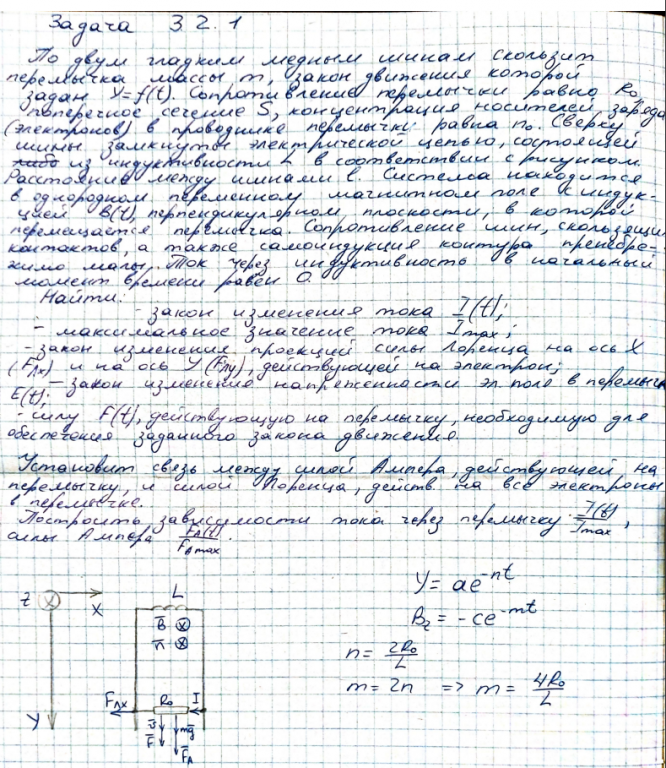 Задача 3.2.1
По двум гладким медным шинам скользит
перемычка массы m, закон движения которой
задан Y=f(t). Сопротивление перемычки равно R₀,
поперечное сечение S, концентрация носителей заряда
(электронов) в проводнике перемычки равна n₀. Сверху
шины замкнуты электрической цепью, состоящей
либо из индуктивности L в соответствии с рисунком.
Расстояние между шинами l. Система находится
в однородном переменном магнитном поле с индук-
цией B(t), перпендикулярном плоскости, в которой
перемещается перемычка. Сопротивление шин, скользящих
контактов, а также самоиндукция контура пренебре-
жимо малы. Ток через индуктивность в начальный
момент времени равен 0.
Найти:
- закон изменения тока I(t);
- максимальное значение тока Imax;
- закон изменения проекций силы Лоренца на ось X
(Fлх) и на ось Y (Fлу), действующей на электрон;
- закон изменения напряженности эл. поле в перемычке
E(t);
- силу F(t), действующую на перемычку, необходимую для
обеспечения заданного закона движения.
Установит связь между силой Ампера, действующей на
перемычку, и силой Лоренца, действ. на все электроны
в перемычке.
Построить зависимости тока через перемычку I(t)/Imax,
силы Ампера FA(t)/FAmax.
Z X L
B
n
Y = ae^-nt
Bz = -ce^-mt
n = 2R₀/L
m = 2n => m = 4R₀/L
Fлх R₀ I
Y F mg
FA